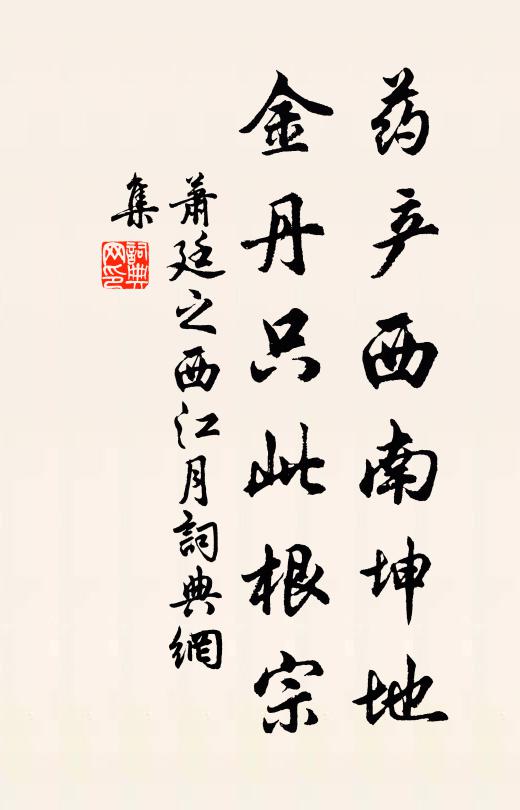 药产西南坤地
金丹只此根宗
萧廷之西江月詞典網
集
詞典網印